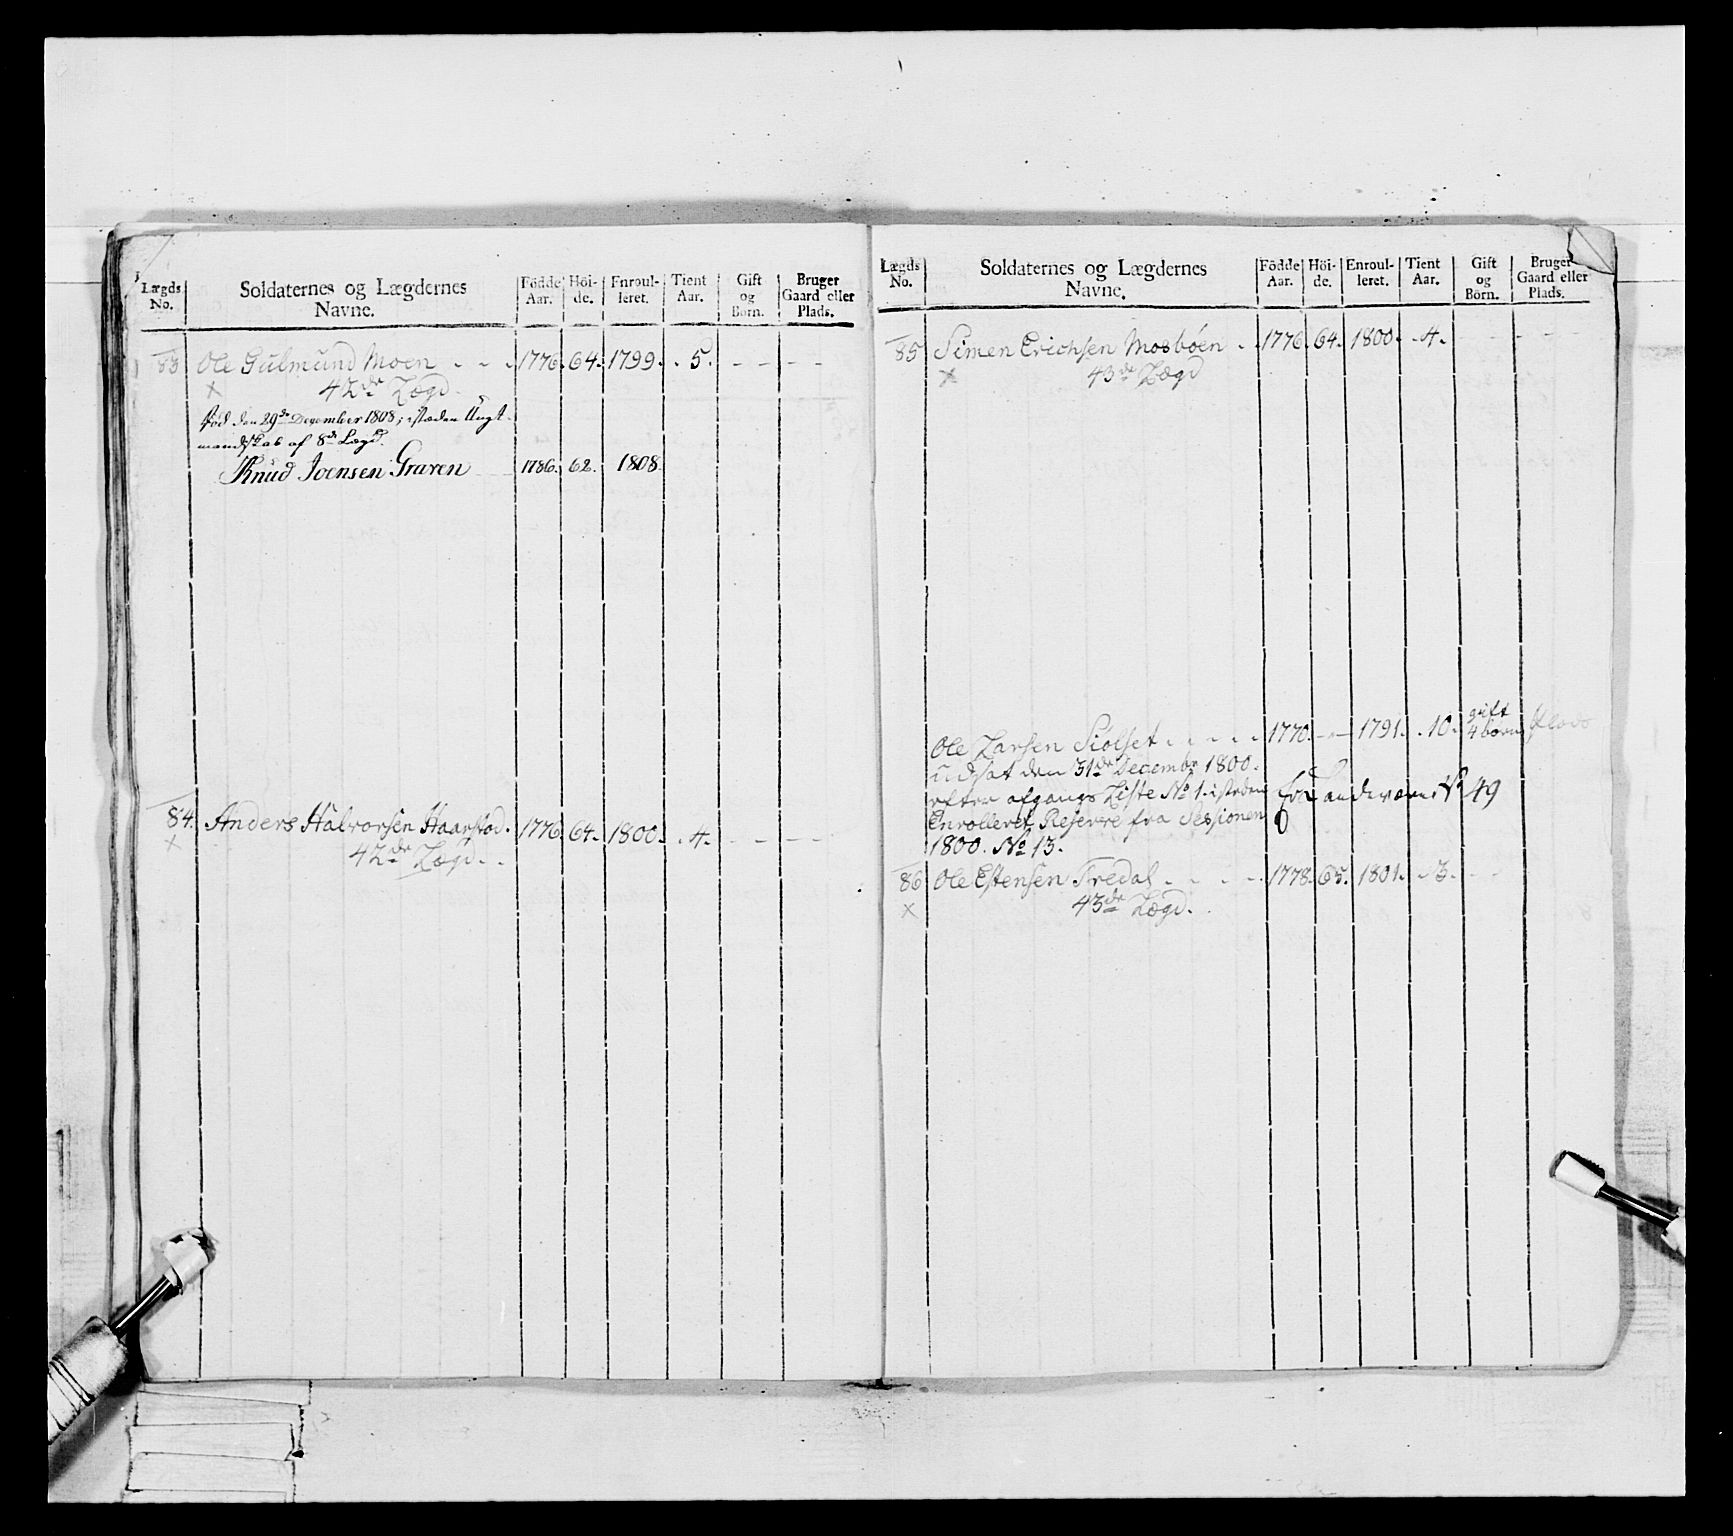 Lægds No. Soldaternes og Lægdernes Navne. Födde Aar. Höi-de. Enroul-leret. Tient Aar. Gift og Börn. Bruger Gaard eller Plads.
83 Ole Gulmund Moen . . . 1776. 64. 1799. . 5. - - - -
x 42de Lægd.
død den 29de December 1808; istæden Ungt-
mandskab af 8de Lægd.
Knud Joensen Graven 1786. 62. 1808.
84. Anders Halvorsen Haarstad. 1776 64. 1800. . 4. - - - -
x 42de Lægd. .
Lægds No. Soldaternes og Lægdernes Navne. Födde Aar. Höi-de. Enroul-leret. Tient Aar. Gift og Börn. Bruger Gaard eller Plads.
85 Simen Erichsen Mosbøen . . 1776. 64. 1800. . 4. - - - -
x 43de Lægd
Ole Larsen Siolset . . . . . 1770. - - 1791. . 10. gift 4 börn
udsat den 31de Decembr 1800.
efter afgangs Liste No 1. isteden Landeværnet No 49
Enrolleret Reserve fra Sessionen
1800. No 13.
86 Ole Estensen Tredal . . . . 1778. 65. 1801. . 3. - -
x 43de Lægd.